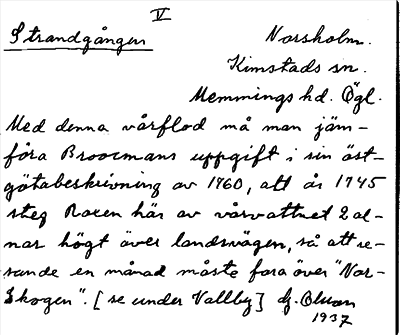 V
Strandgången Norsholm.
Kimstads sn.
Memmings hd. Ögl.
Med denna vårflod må man jäm-
föra Broocmans uppgift i sin öst-
götabeskrivning av 1760, att år 1745
steg Roxen här av vårvattnet 2 al-
nar högt över landsvägen, så att re-
sande en månad måste fara över "Nor-
skogen". [se under Vallby]
1937